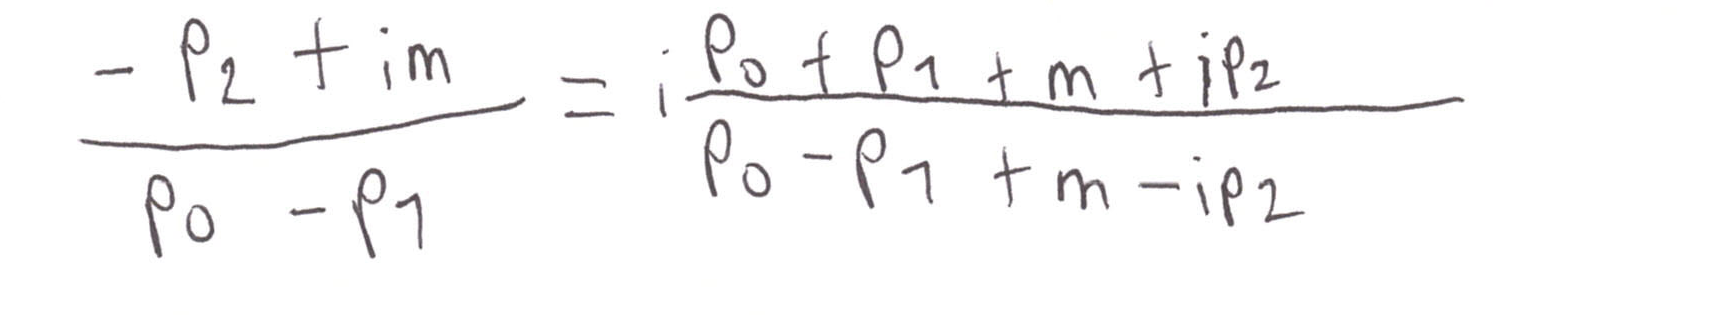 \frac{-p_2 + im}{p_0 - p_1} = i \frac{p_0 + p_1 + m + ip_2}{p_0 - p_1 + m - ip_2}